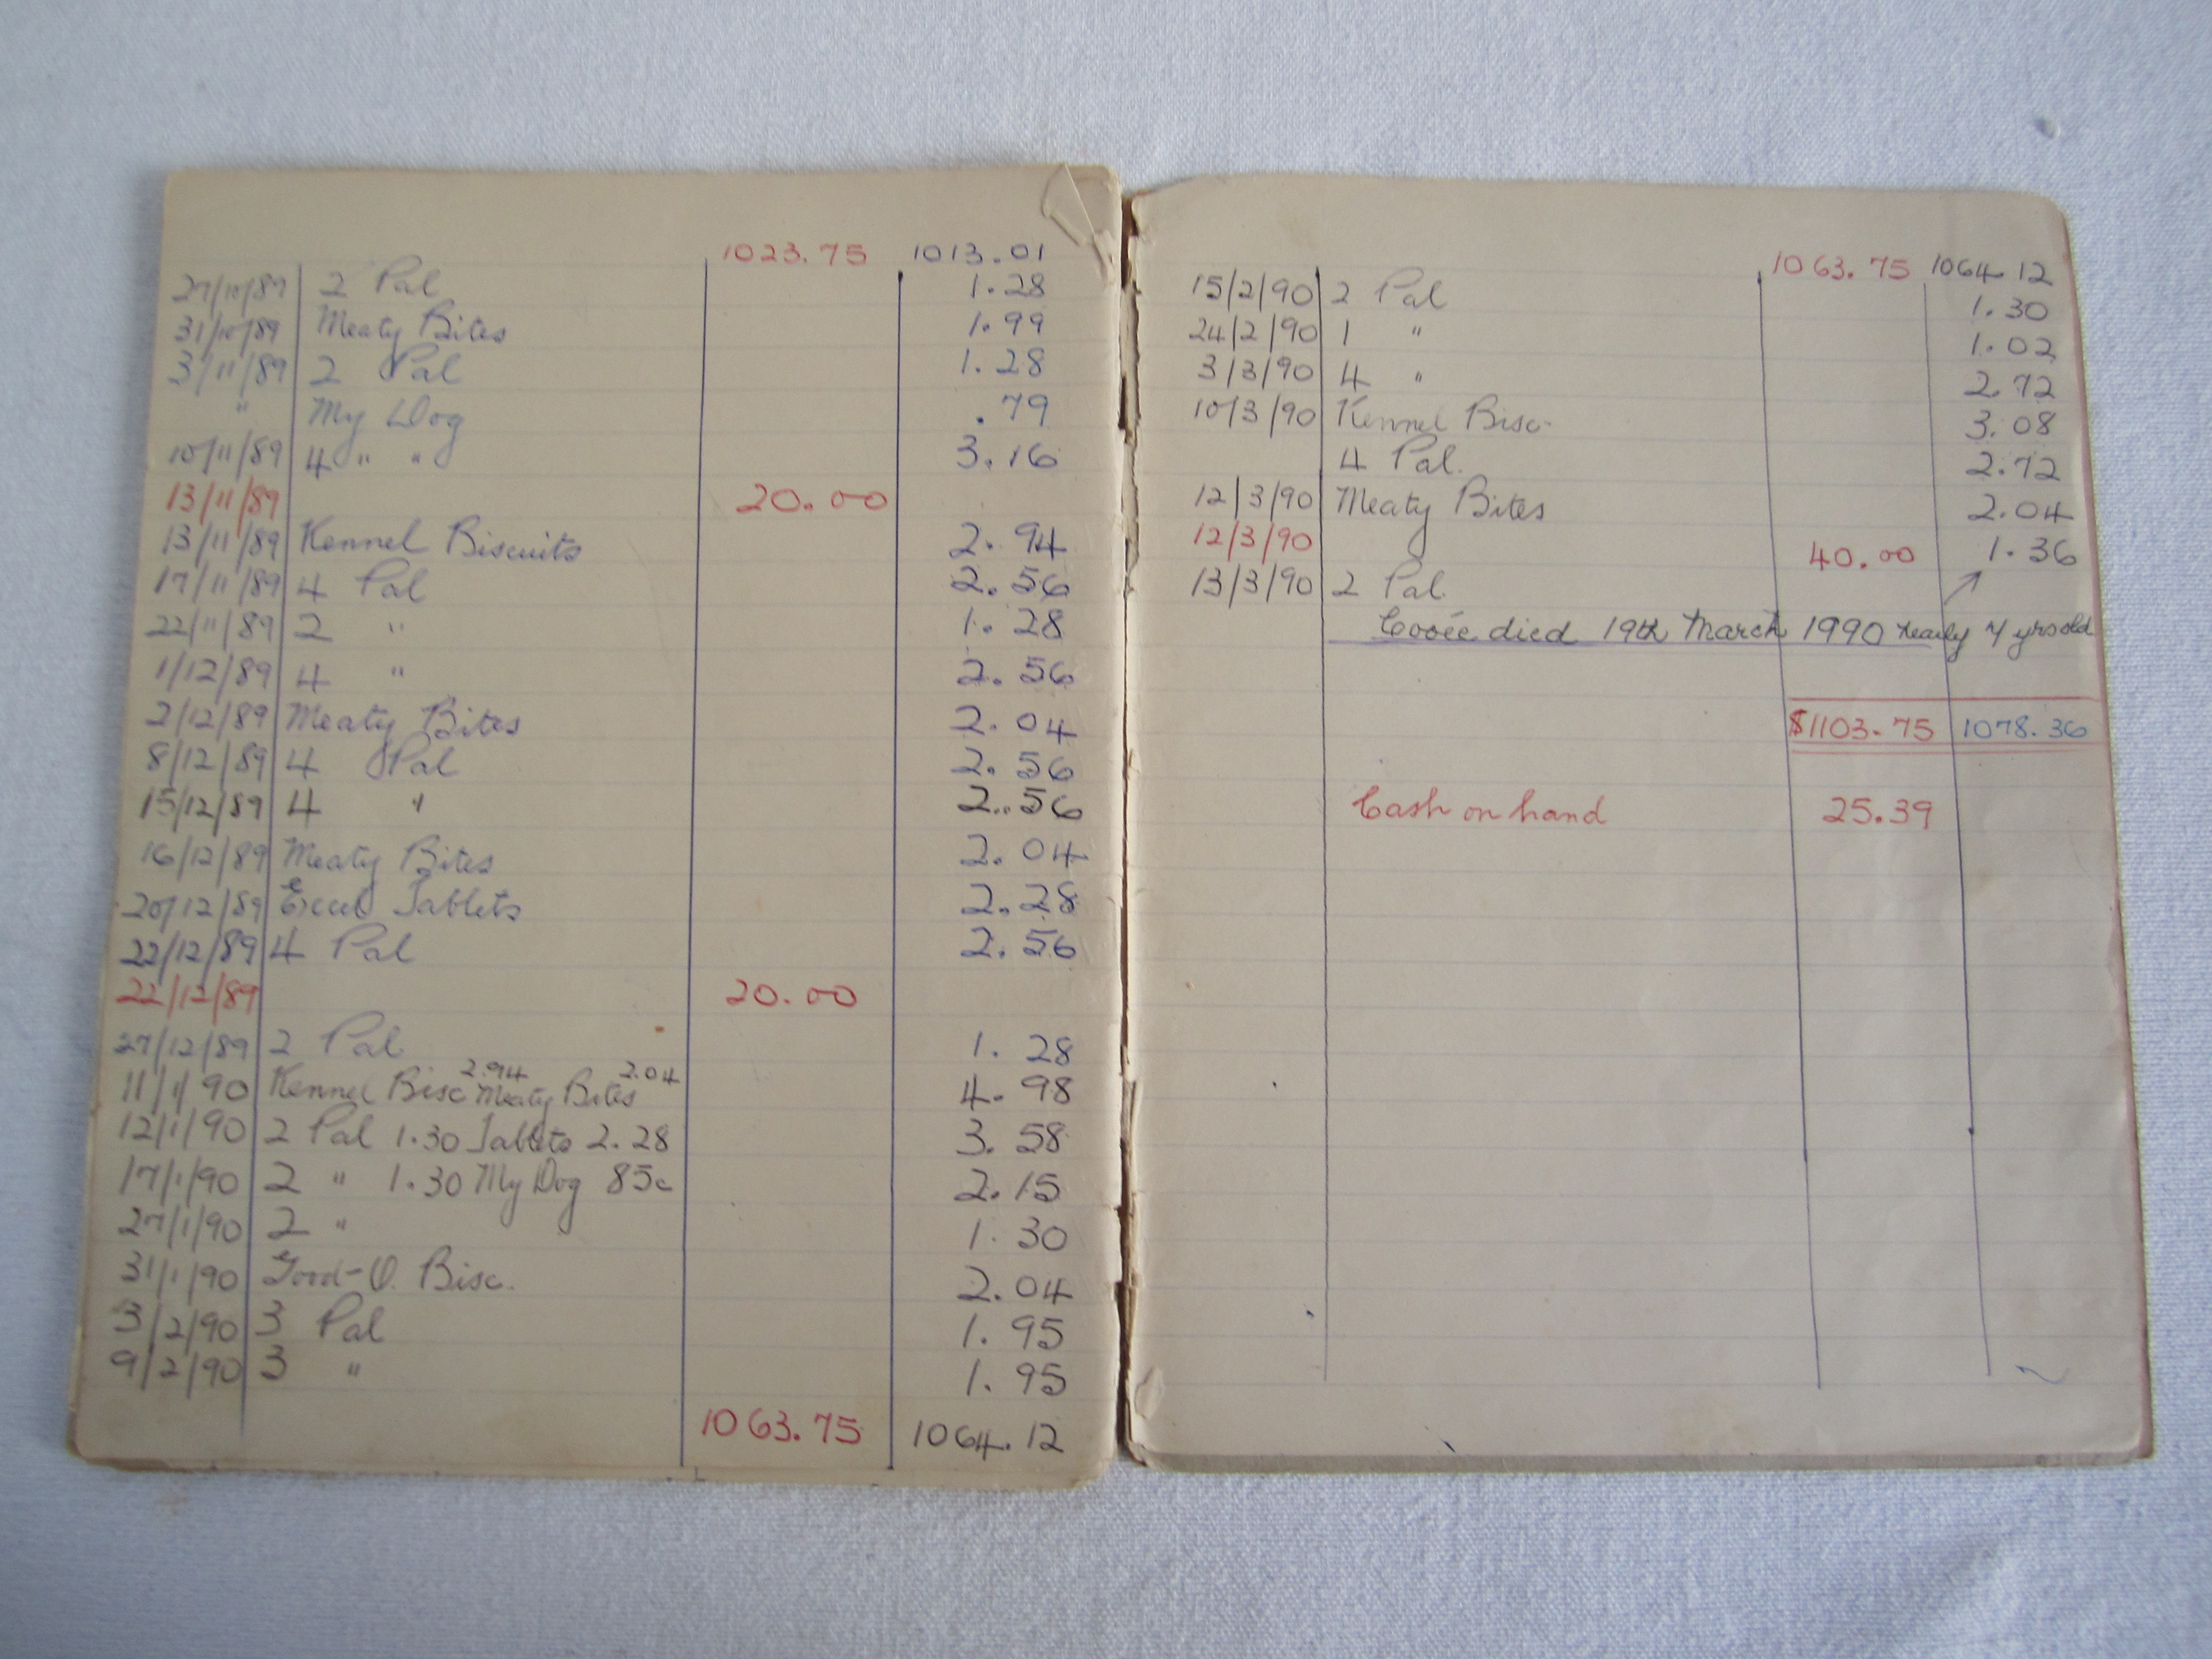 1023.75 1013.01
27/10/89 2 Pal 1.28
31/10/89 Meaty Bites 1.99
3/11/89 2 Pal 1.28
" My Dog .79
10/11/89 4 " " 3.16
13/11/89 20.00
13/11/89 Kennel Biscuits 2.94
17/11/89 4 Pal 2.56
22/11/89 2 " 1.28
1/12/89 4 " 2.56
2/12/89 Meaty Bites 2.04
8/12/89 4 Pal 2.56
15/12/89 4 " 2.56
16/12/89 Meaty Bites 2.04
20/12/89 Excel Tablets 2.28
22/12/89 4 Pal 2.56
22/12/89 20.00
27/12/89 2 Pal 1.28
11/1/90 Kennel Bisc 2.94 Meaty Bites 2.04 4.98
12/1/90 2 Pal 1.30 Tablets 2.28 3.58
17/1/90 2 " 1.30 My Dog 85c 2.15
27/1/90 2 " 1.30
31/1/90 Good-O. Bisc. 2.04
3/2/90 3 Pal 1.95
9/2/90 3 " 1.95
1063.75 1064.12
1063.75 1064.12
15/2/90 2 Pal 1.30
24/2/90 1 " 1.02
3/3/90 4 " 2.72
10/3/90 Kennel Bisc. 3.08
4 Pal. 2.72
12/3/90 Meaty Bites 2.04
12/3/90 40.00 1.36
13/3/90 2 Pal.
Cooée died 19th March 1990 nearly 7 yrs old
$1103.75 1078.36
Cash on hand 25.39